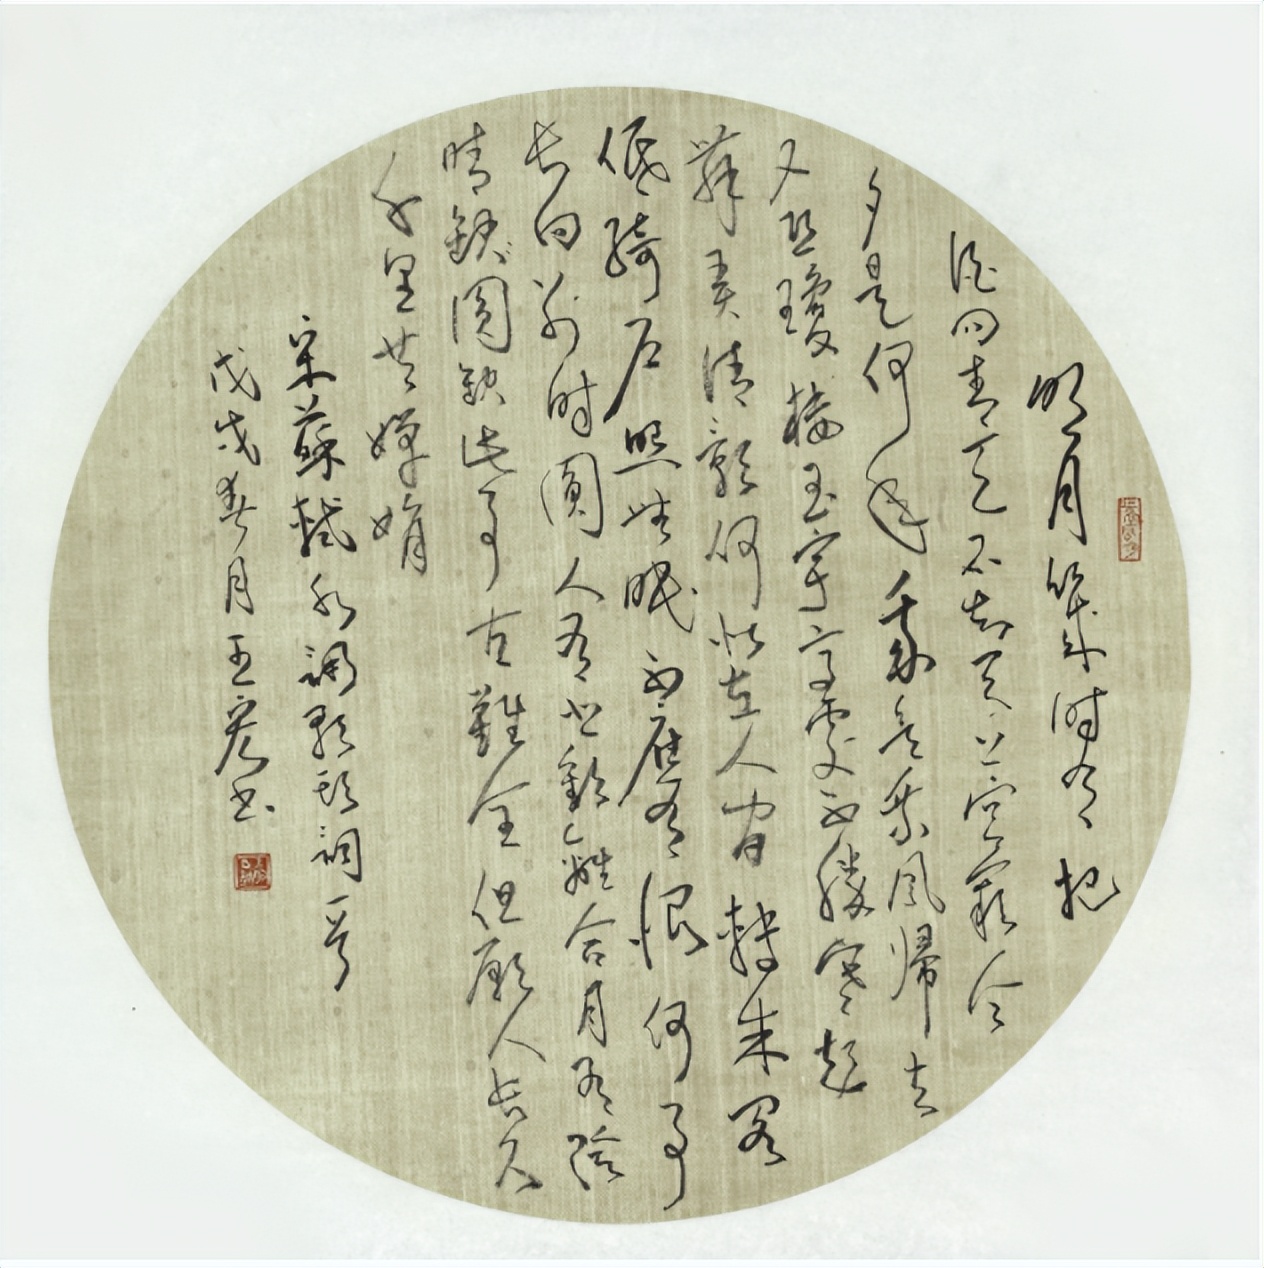 明月幾時有把
酒問青天不知天上宮闕今
夕是何年我欲乘風歸去
又恐瓊樓玉宇高處不勝寒起
舞弄清影何似在人間轉朱閣
低綺户照無眠不應有恨何事
長向别時圓人有悲歡離合月有陰
晴缺圓缺此事古難全但願人長久
千里共嬋娟
宋蘇軾水調歌頭詞一首
戊戌春月王书